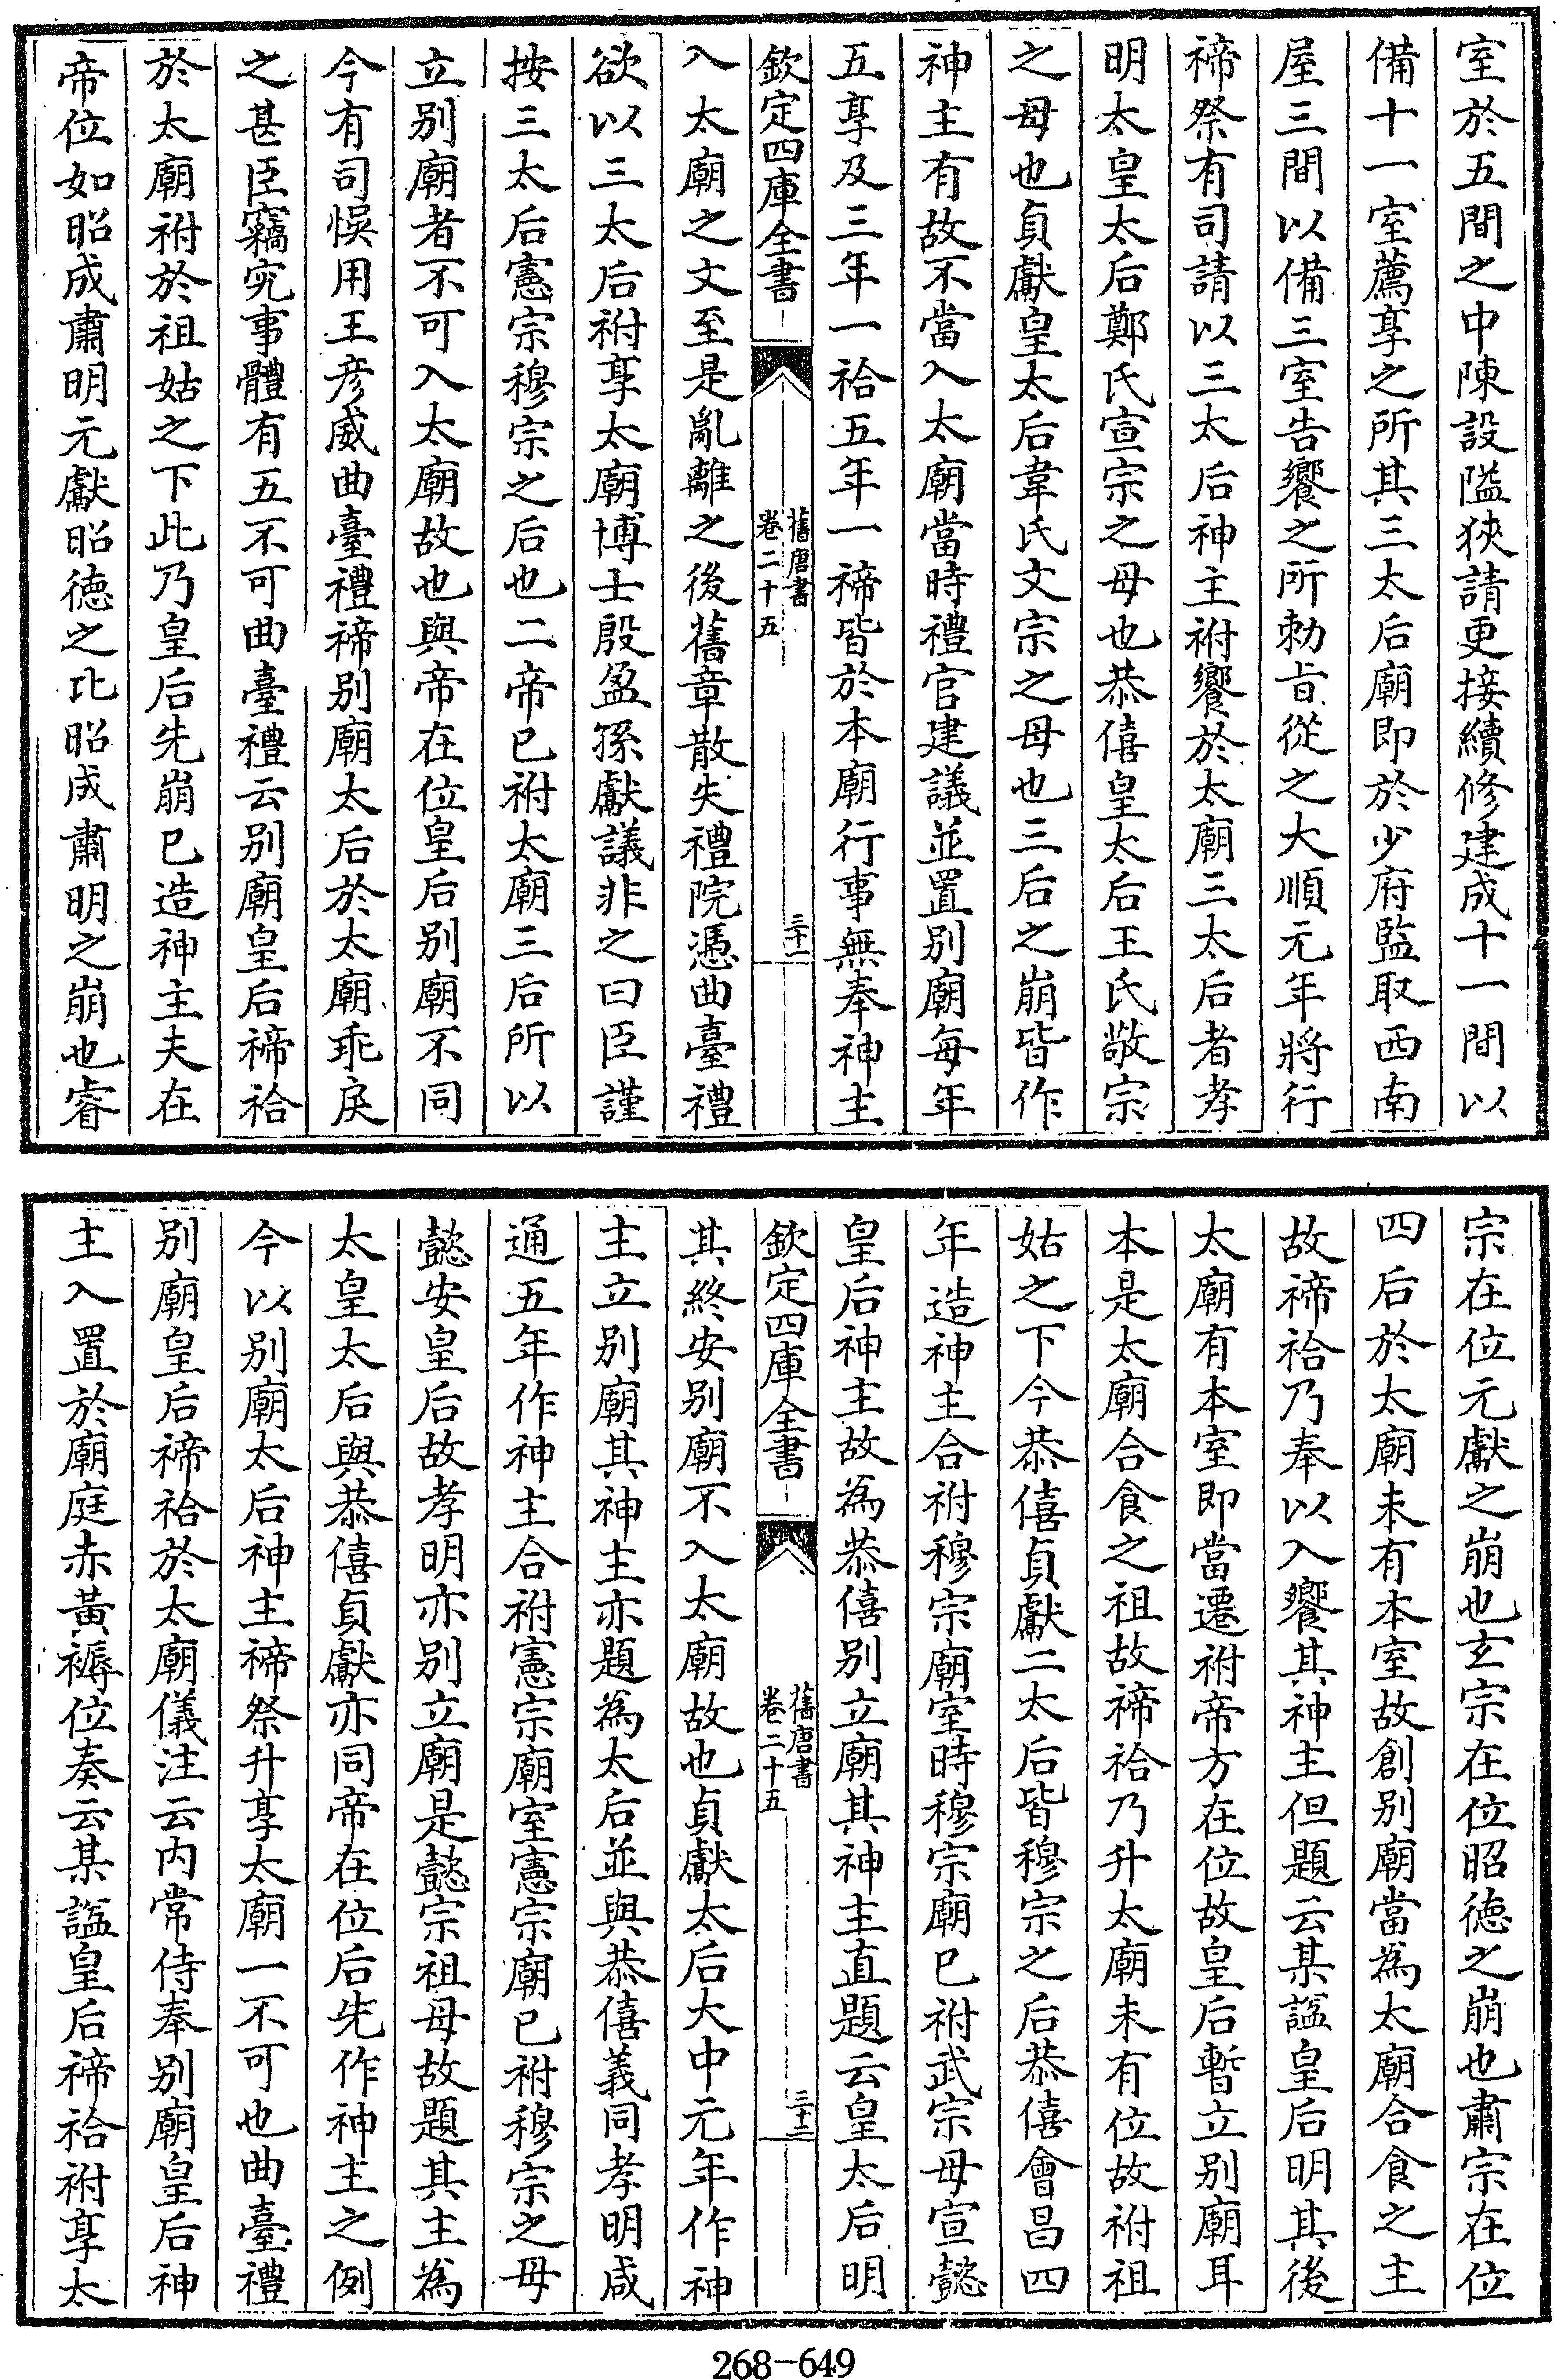 室於五間之中陳設隘狹請更接續修建成十一間以
備十一室薦享之所其三太后廟即於少府監取西南
屋三間以備三室告饗之所勅旨從之大順元年將行
禘祭有司請以三太后神主祔饗於太廟三太后者孝
明太皇太后鄭氏宣宗之母也恭僖皇太后王氏敬宗
之母也貞獻皇太后韋氏文宗之母也三后之崩皆作
神主有故不當入太廟當時禮官建議並置别廟每年
五享及三年一祫五年一禘皆於本廟行事無奉神主
欽定四庫全書
舊唐書
卷二十五
三十一
入太廟之文至是亂離之後舊章散失禮院憑曲臺禮
欲以三太后祔享太廟博士殷盈孫獻議非之曰臣謹
按三太后憲宗穆宗之后也二帝已祔太廟三后所以
立别廟者不可入太廟故也與帝在位皇后别廟不同
今有司悞用王彦威曲臺禮禘别廟太后於太廟乖戾
之甚臣竊究事體有五不可曲臺禮云别廟皇后禘祫
於太廟祔於祖姑之下此乃皇后先崩已造神主夫在
帝位如昭成肅明元獻昭德之比昭成肅明之崩也睿
宗在位元獻之崩也玄宗在位昭德之崩也肅宗在位
四后於太廟未有本室故創别廟當為太廟合食之主
故禘祫乃奉以入饗其神主但題云某諡皇后明其後
太廟有本室即當遷祔帝方在位故皇后暫立别廟耳
本是太廟合食之祖故禘祫乃升太廟未有位故祔祖
姑之下今恭僖貞獻二太后皆穆宗之后恭僖會昌四
年造神主合祔穆宗廟室時穆宗廟已祔武宗母宣懿
皇后神主故為恭僖别立廟其神主直題云皇太后明
欽定四庫全書
舊唐書
卷二十五
三十二
其終安别廟不入太廟故也貞獻太后大中元年作神
主立别廟其神主亦題為太后並與恭僖義同孝明咸
通五年作神主合祔憲宗廟室憲宗廟已祔穆宗之母
懿安皇后故孝明亦别立廟是懿宗祖母故題其主為
太皇太后與恭僖貞獻亦同帝在位后先作神主之例
今以别廟太后神主禘祭升享太廟一不可也曲臺禮
别廟皇后禘祫於太廟儀注云内常侍奉别廟皇后神
主入置於廟庭赤黄褥位奏云某諡皇后禘祫祔享太
268-649